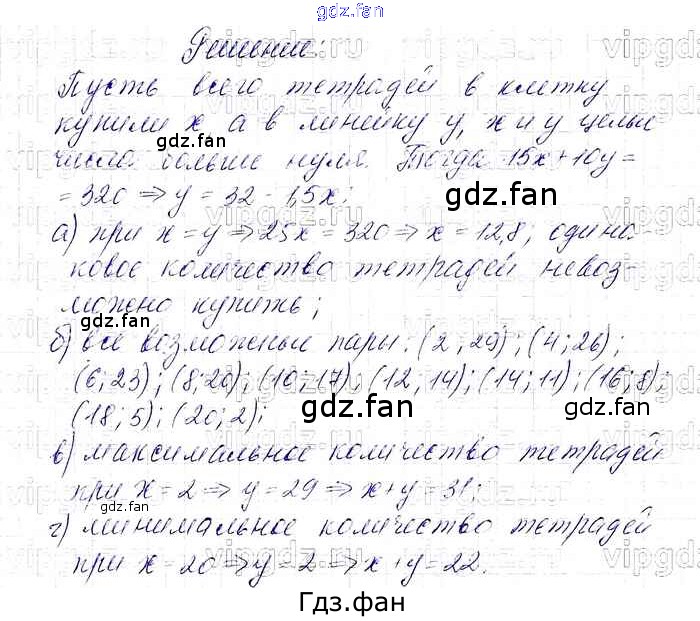 gdz.fan
Решение:
Пусть всего тетрадей в клетку
купили x а в линейку y, x и y целые
числа больше нуля. Тогда 15x+10y =
= 320 ⇒ y = 32 - 1,5x;
а) при x = y ⇒ 25x = 320 ⇒ x = 12,8; одина-
ковое количество тетрадей невоз-
можно купить;
б) все возможные пары: (2; 29); (4; 26);
(6; 23); (8; 20); (10; 17); (12; 14); (14; 11); (16; 8);
(18; 5); (20; 2);
в) максимальное количество тетрадей
при x = 2 ⇒ y = 29 ⇒ x+y = 31;
г) минимальное количество тетрадей
при x = 20 ⇒ y = 2 ⇒ x+y = 22.
Гдз.фан